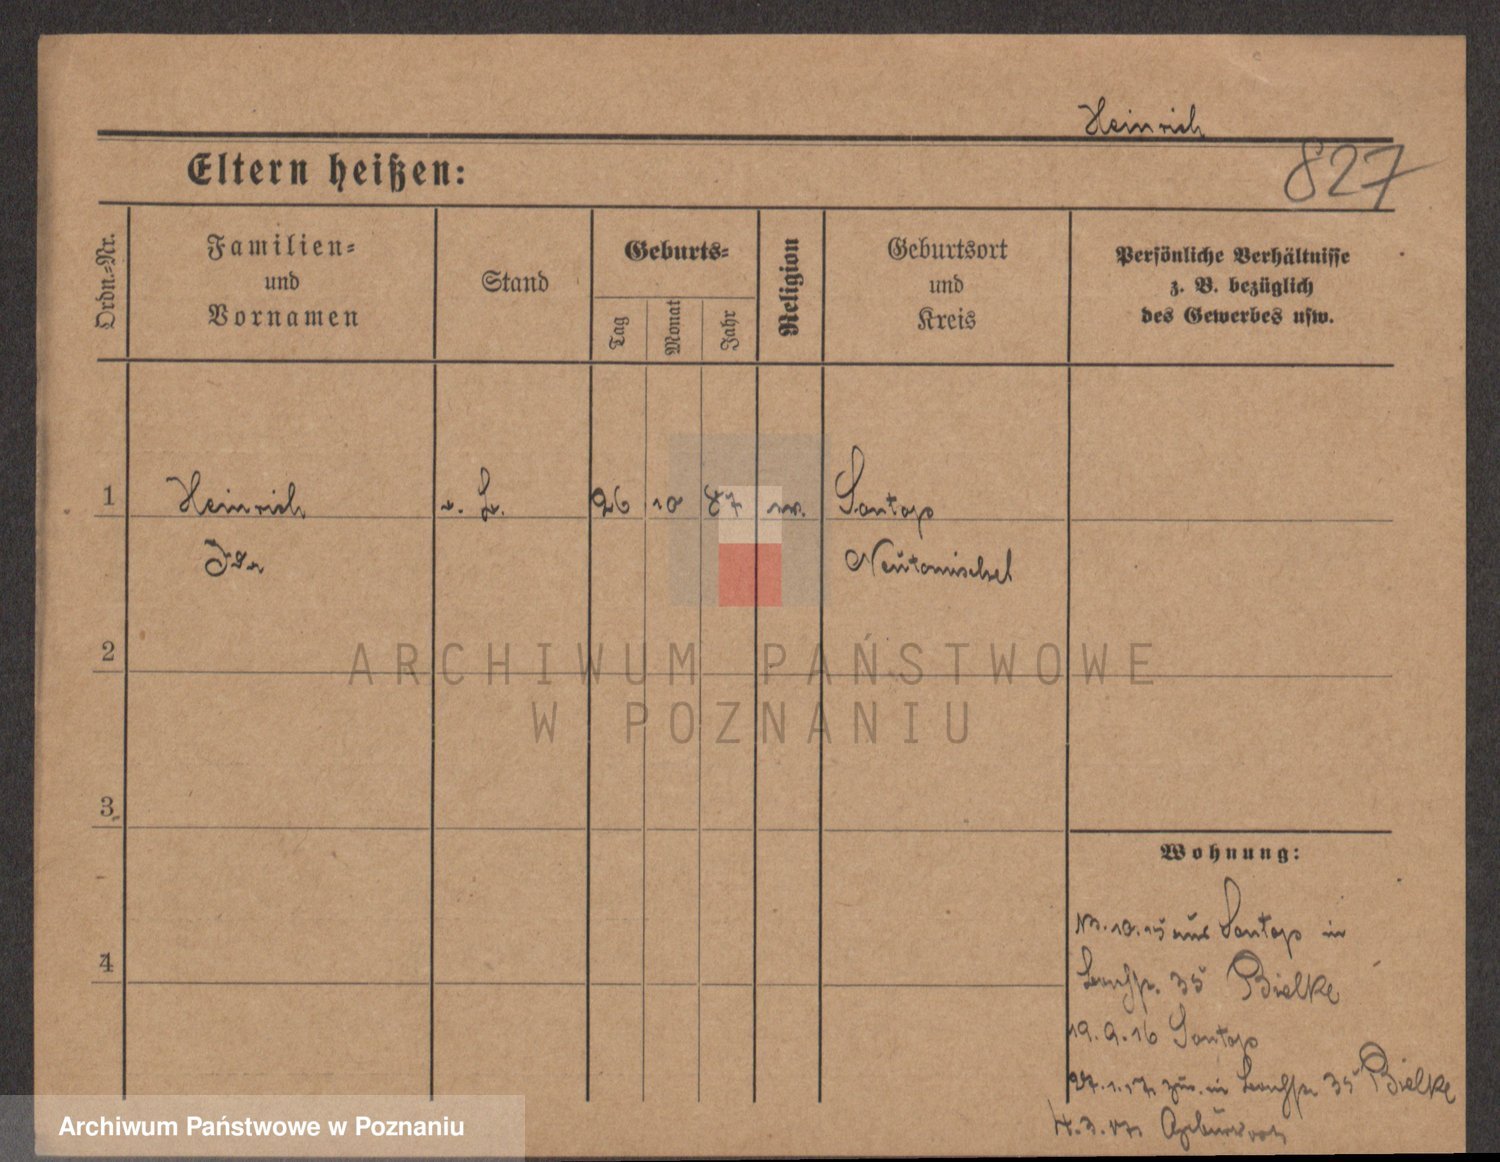 Heinrich
827
Eltern heißen:
Ordn.=Nr.
Familien=
und
Vornamen
Stand
Geburts=
Tag
Monat
Jahr
Religion
Geburtsort
und
Kreis
Persönliche Verhältnisse
z. B. bezüglich
des Gewerbes usw.
1 Heinrich 26 10 87 Sontop
Ida Neutomischel
2
3
4
ARCHIWUM PAŃSTWOWE
W POZNANIU
Wohnung:
13.10.15 aus Sontop in
35 Bielke
19.9.16 Sontop
27.1.17 in 35 Bielke
Archiwum Państwowe w Poznaniu